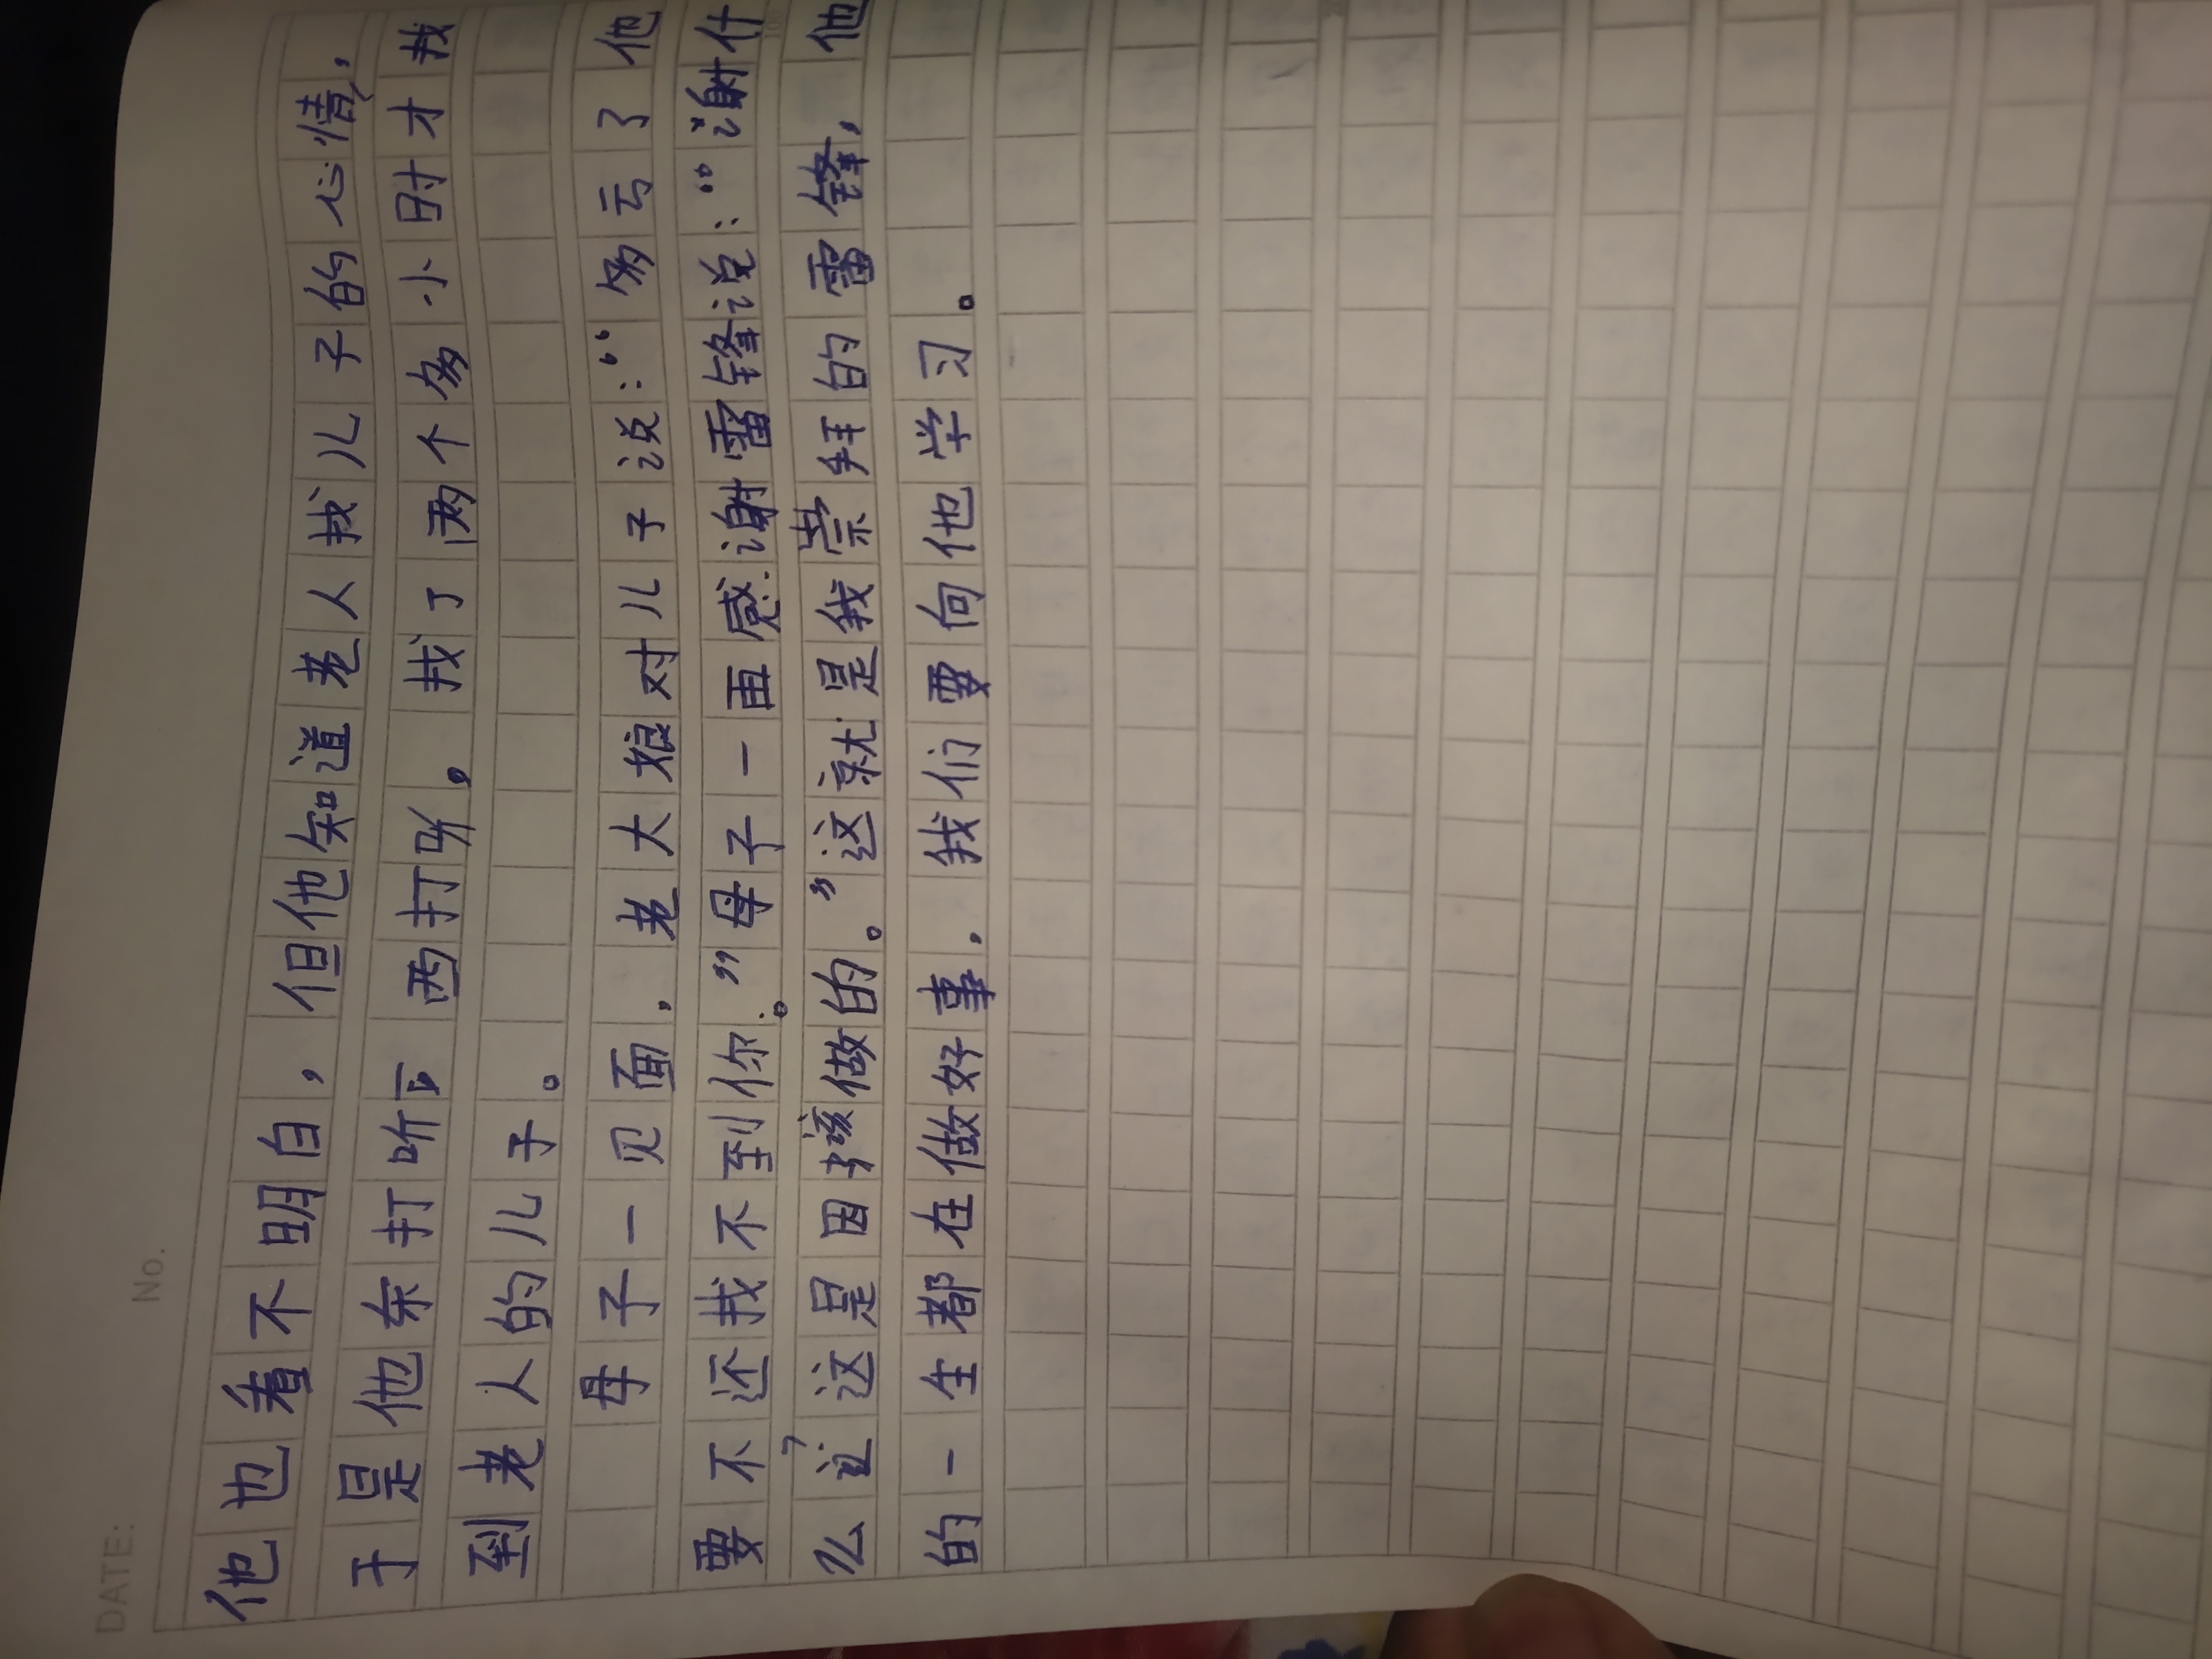 DATE: No.
他也看不明白，但他知道老人找儿子的心情，
于是他东打听西打听，找了两个多小时才找
到老人的儿子。
母子一见面，老大娘对儿子说：“多云了他
要不还找不到你。”母子一再感谢雷锋说：“谢什
么这是因该做的。”这就是我崇拜的雷锋，他
的一生都在做好事，我们要向他学习。